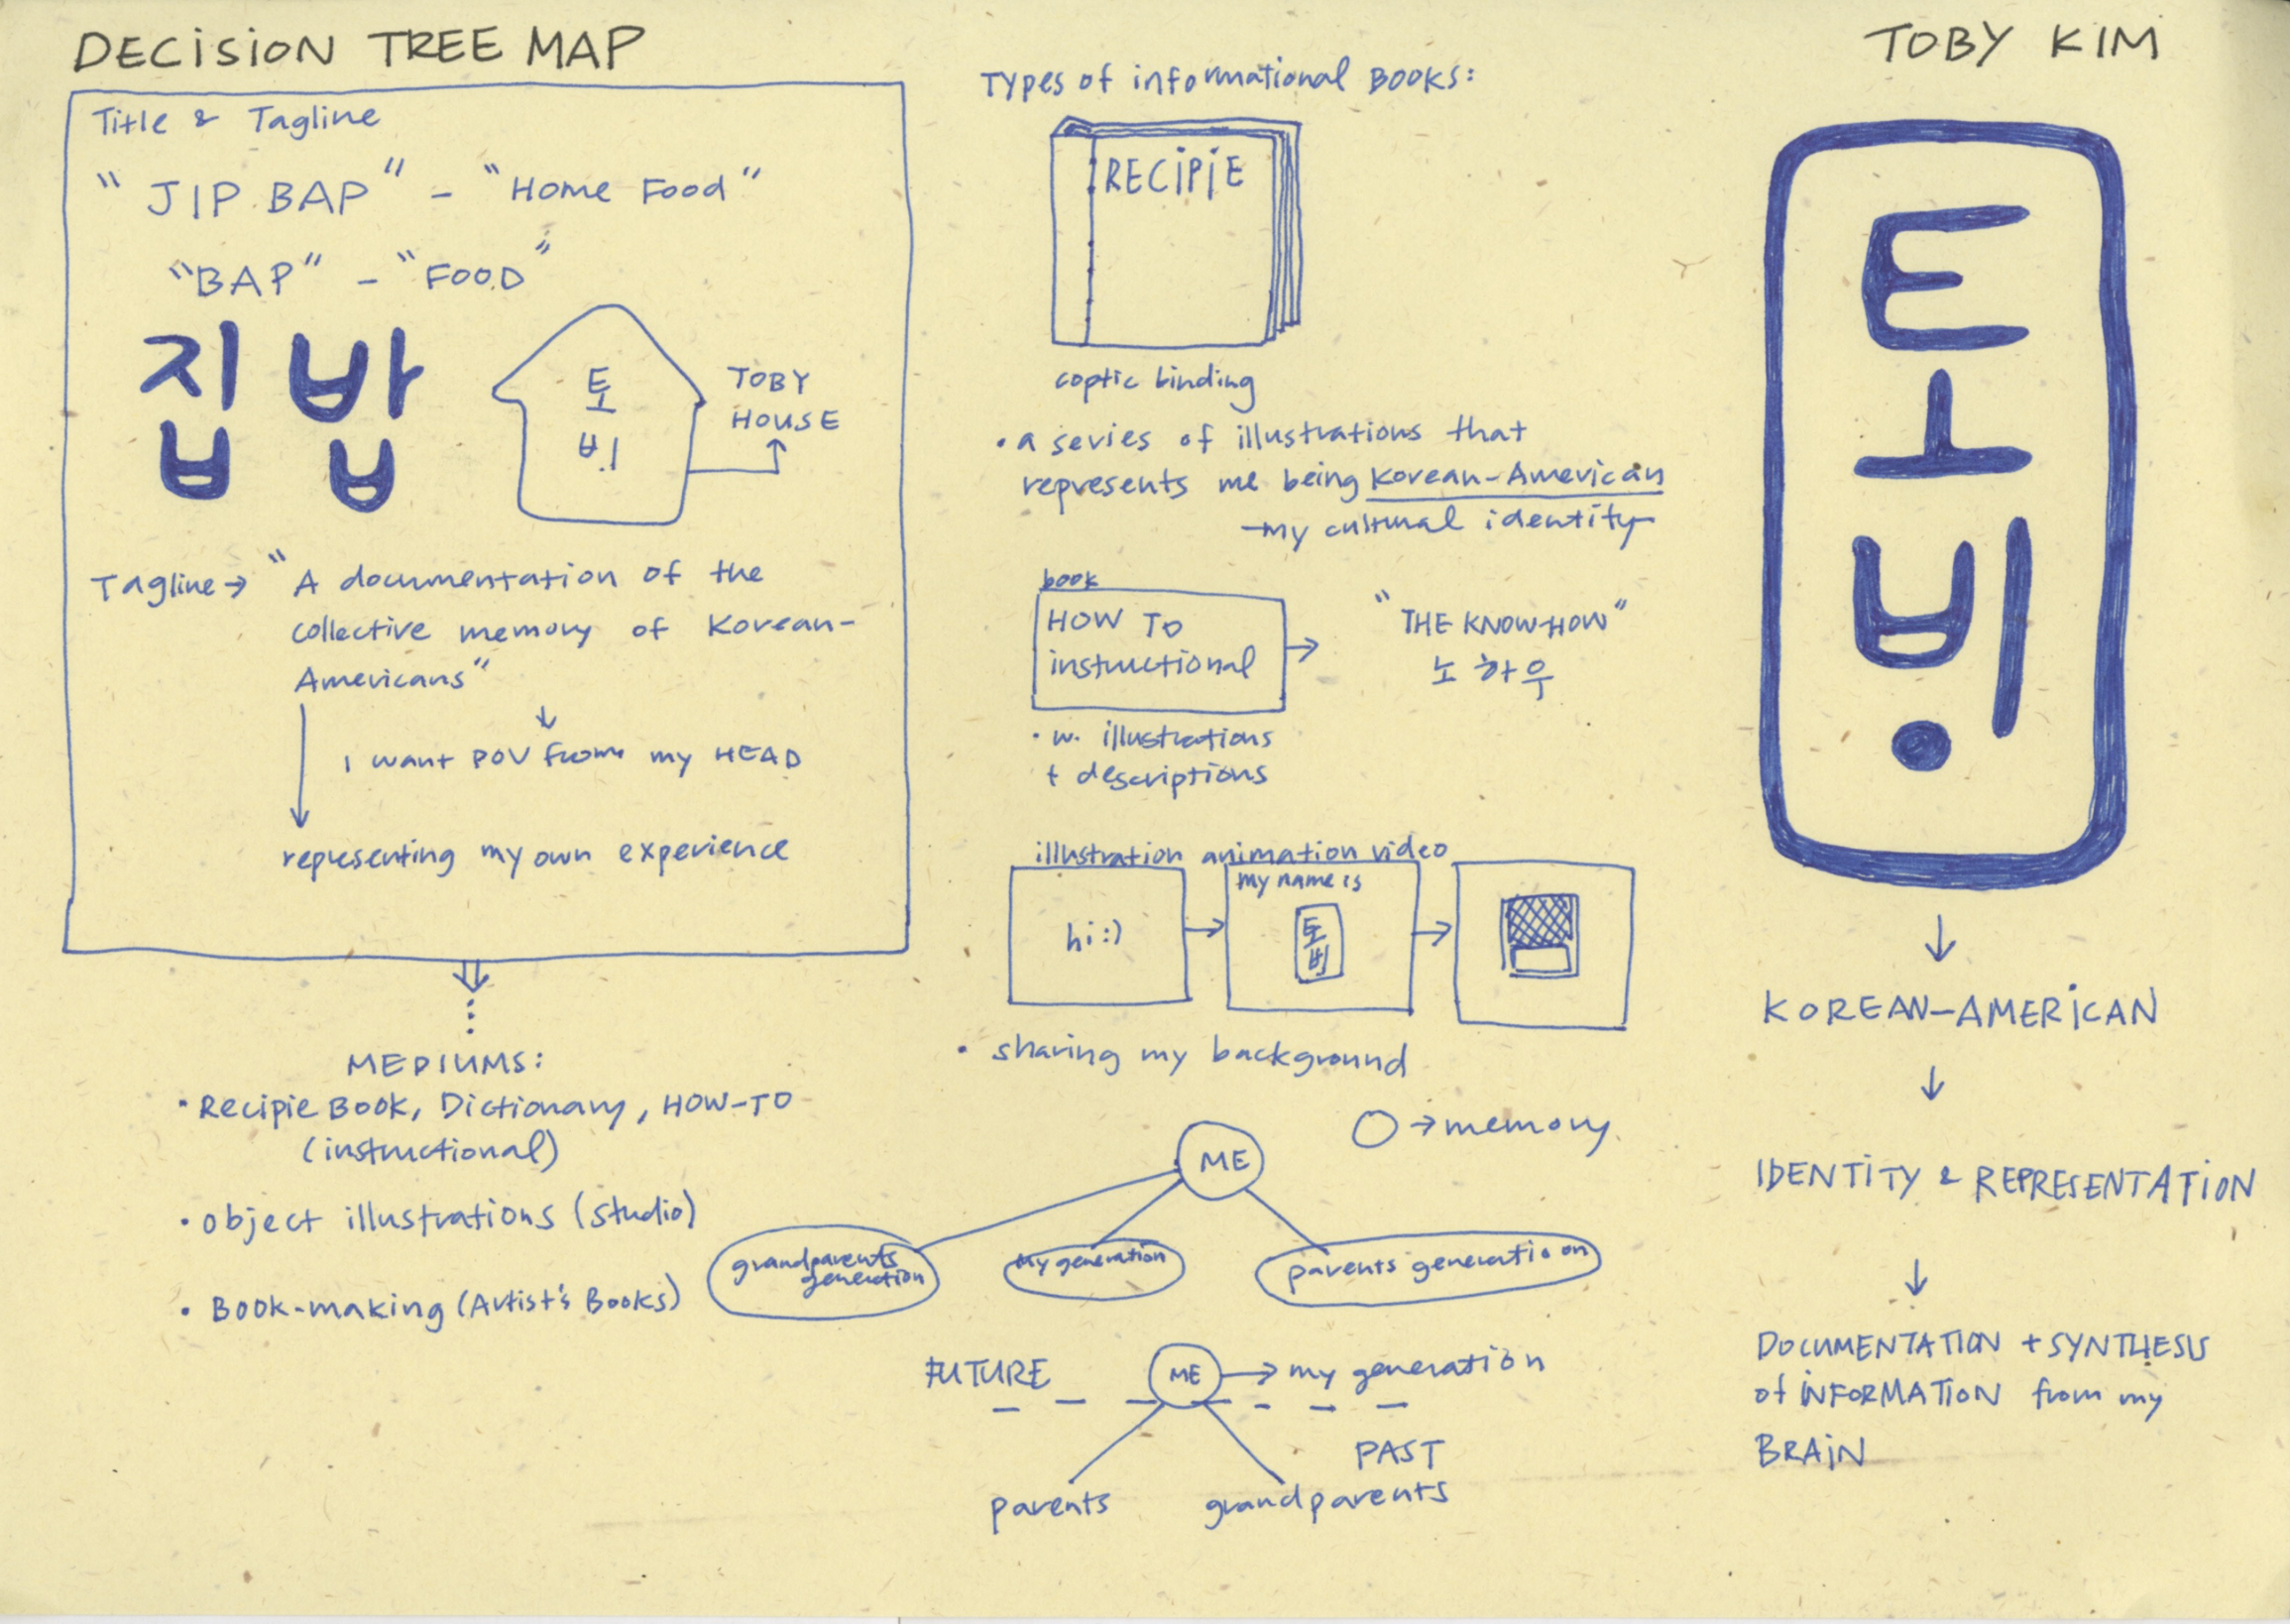 DECISION TREE MAP
TOBY KIM
Title & Tagline
"JIP BAP" - "Home Food"
"BAP" - "FOOD"
집밥
토
비
TOBY
HOUSE
Tagline → "A documentation of the
collective memory of Korean-
Americans"
↓
I want POV from my HEAD
representing my own experience
MEDIUMS:
• Recipie Book, Dictionary, HOW-TO
(instructional)
• object illustrations (studio)
• Book-making (Artist's Books)
Types of informational BOOKS:
RECIPIE
coptic binding
• a series of illustrations that
represents me being Korean-American
-my cultural identity-
book
HOW TO
instructional
"THE KNOW-HOW"
노하우
• w. illustrations
+ descriptions
illustration animation video
hi :)
my name is
토
비
• sharing my background
→ memory
ME
grandparents
generation
My generation
parents generation
FUTURE
ME → my generation
PAST
parents
grandparents
토
비
↓
KOREAN-AMERICAN
↓
IDENTITY & REPRESENTATION
↓
DOCUMENTATION + SYNTHESIS
of INFORMATION from my
BRAIN